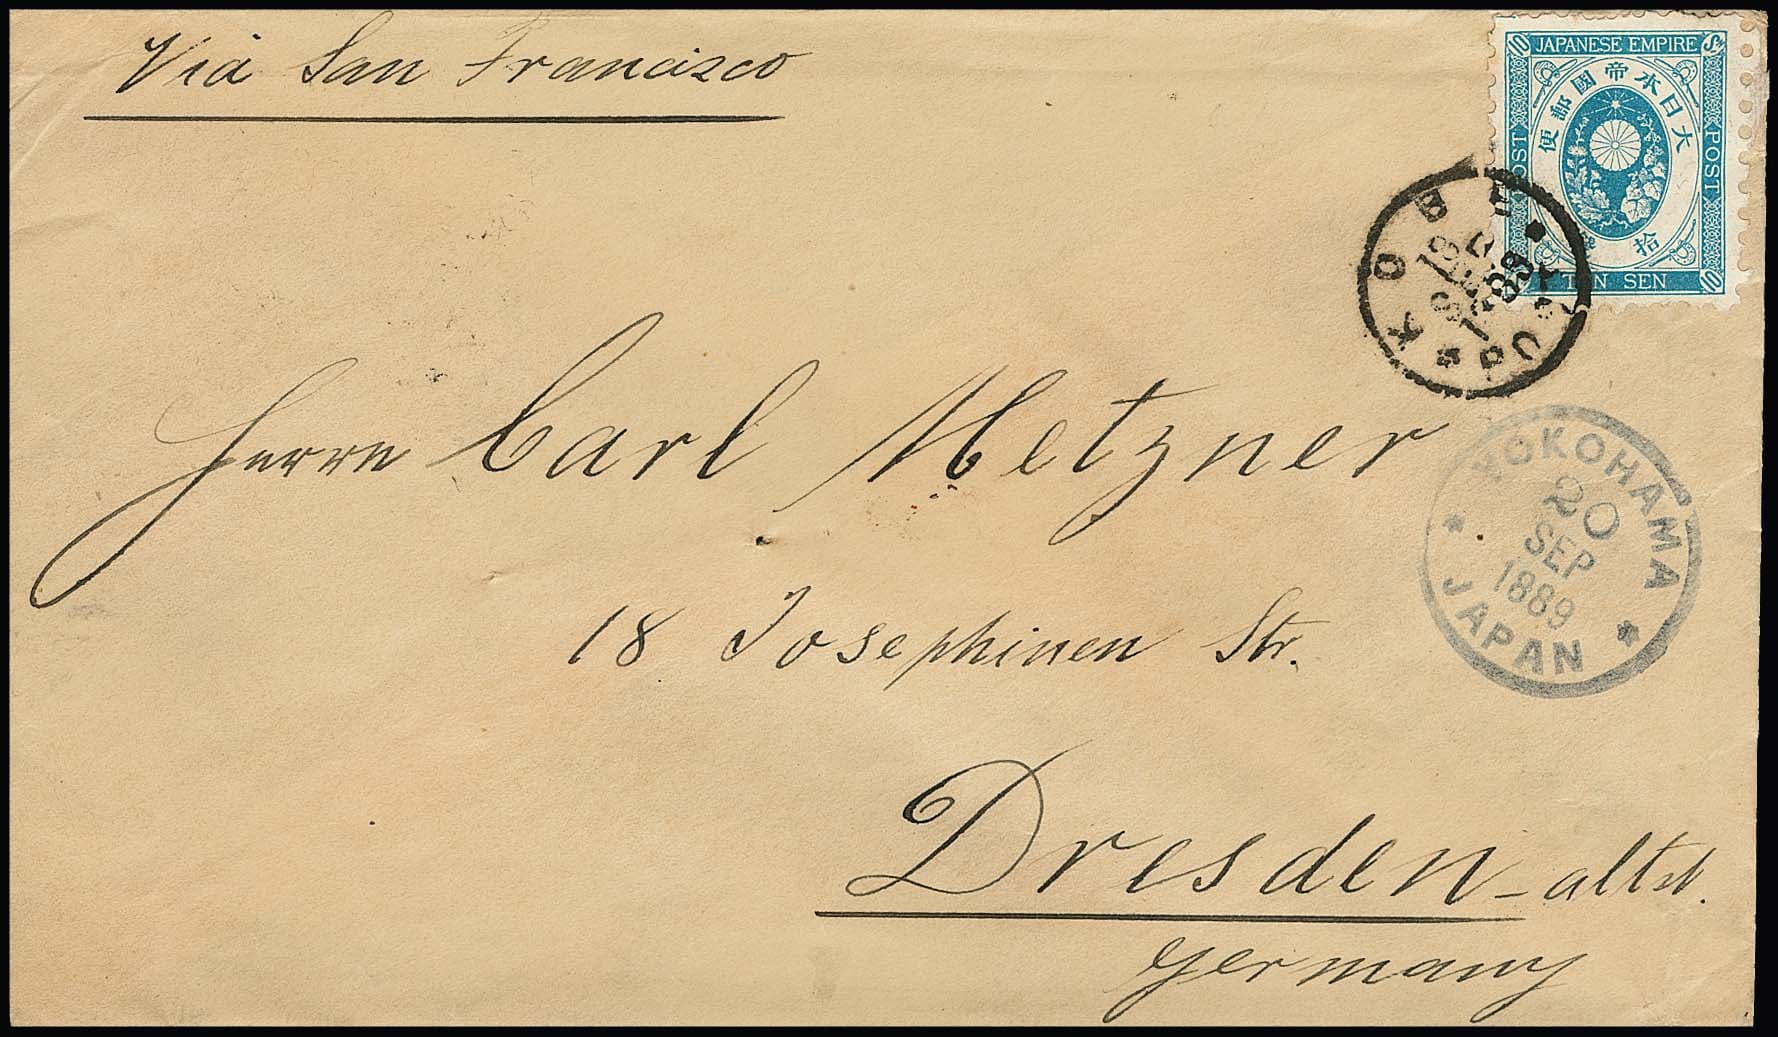 Via San Francisco
JAPANESE EMPIRE
10 S
大日本帝國郵便
POST
POST
拾
TEN SEN
10
10
KOBE
SEP
YOKOHAMA
20
SEP
1889
JAPAN
Herrn Carl Metzner
18 Josephinen Str.
Dresden-altst.
Germany